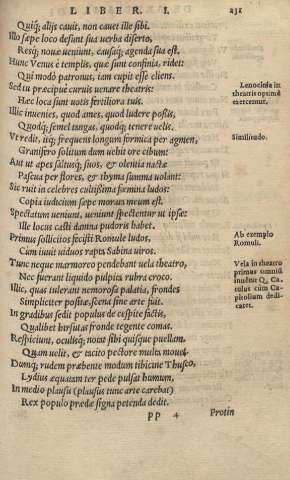 LIBER. I. 231
Quiq; alijs cauit, non cauet ille sibi.
Illo sæpe loco desunt sua uerba diserto,
Resq; nouæ ueniunt, causaq; agenda sua est.
Hunc Venus è templis, quæ sunt confinia, ridet:
Qui modò patronus, iam cupit esse cliens.
Sed tu præcipuè curuis uenare theatris:
Hæc loca sunt uotis fertiliora tuis.
Illic inuenies, quod ames, quod ludere possis,
Quodq; semel tangas, quodq; tenere uelis.
Vt redit, itq; frequens longum formica per agmen,
Granifero solitum dum uehit ore cibum:
Aut ut apes saltusq; suos, & olentia nactæ
Pascua per flores, & thyma summa uolant:
Sic ruit in celebres cultissima fœmina ludos:
Copia iudicium sæpe morata meum est.
Spectatum ueniunt, ueniunt spectentur ut ipsæ:
Ille locus casti damna pudoris habet.
Primus sollicitos fecisti Romule ludos,
Cum iuuit uiduos rapta Sabina uiros.
Tunc neque marmoreo pendebant uela theatro,
Nec fuerant liquido pulpita rubra croco.
Illic, quas tulerant nemorosa palatia, frondes
Simpliciter positæ, scena sine arte fuit.
In gradibus sedit populus de cespite factis,
Qualibet hirsutas fronde tegente comas.
Respiciunt, oculisq; notat sibi quisque puellam,
Quam uelit, & tacito pectore multa mouet.
Dumq; rudem præbente modum tibicine Thusco,
Lydius æquatam ter pede pulsat humum,
In medio plausu (plausus tunc arte carebat)
Rex populo prædæ signa petenda dedit.
PP 4 Protin
Lenocinia in
theatris optimè
exercentur.
Similitudo.
Ab exemplo
Romuli.
Vela in theatro
primus omniũ
inuenit Q. Ca-
tulus cum Ca-
pitolium dedi-
caret.